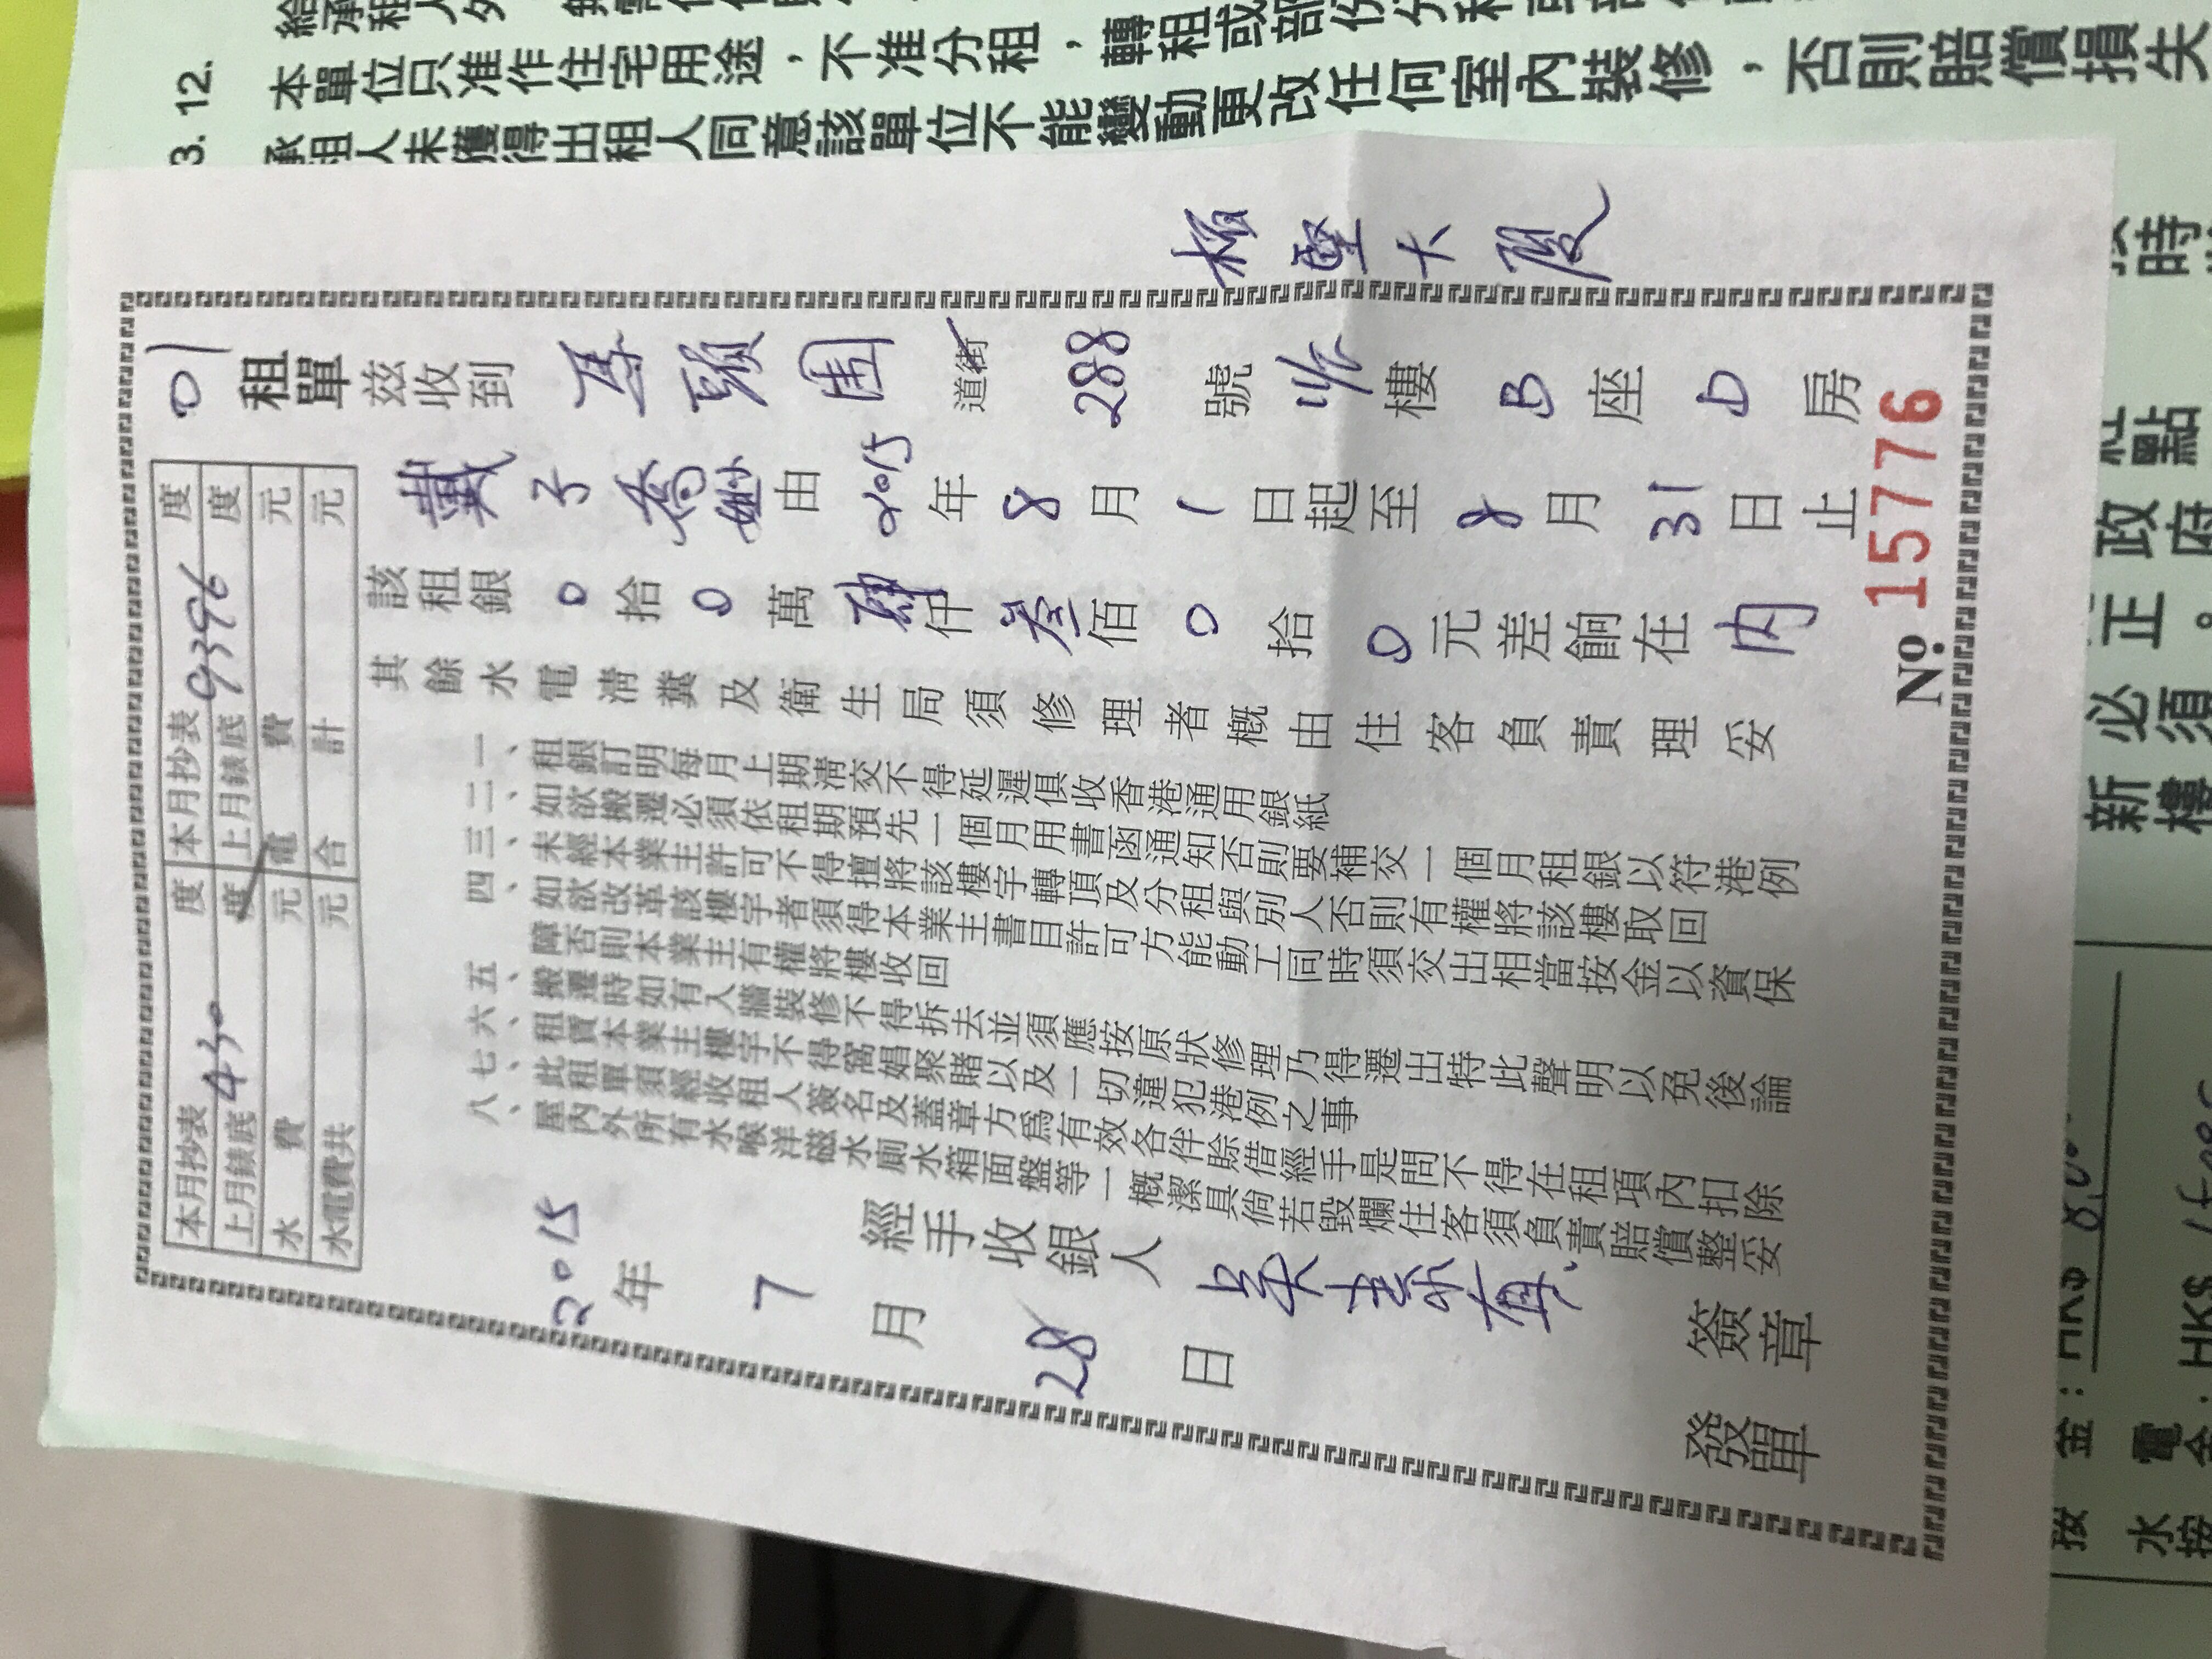 12.
本單位只准作住宅用途，不准分租，轉租或部份分租
3. 承租人未獲得出租人同意該單位不能變動更改任何室內裝修，否則賠償損失
01
租單
茲收到
馬頭圍
道街
288
號
樓
B
座
D
房
戴子喬
由
2015
年
8
月
1
日起至
8
月
31
日止
該租銀
0
拾
0
萬
肆
仟
叁
佰
0
拾
0
元差餉在
内
其餘水電清糞及衛生局須修理者概由住客負責理妥
一、租銀訂明每月上期清交不得延遲俱收香港通用銀紙
二、如欲搬遷必須依租期預先一個月用書函通知否則要補交一個月租銀以符港例
三、未經本業主許可不得擅將該樓宇轉頂及分租與別人否則有權將該樓取回
四、如欲改革該樓宇者須得本業主書目許可方能動工同時須交出相當按金以資保
障否則本業主有權將樓收回
五、搬遷時如有入牆裝修不得拆去並須應按原狀修理乃得遷出特此聲明以免後論
六、租賃本業主樓宇不得窩娼聚賭以及一切違犯港例之事
七、此租單須經收租人簽名及蓋章方爲有效各伴賒借經手是問不得在租項內扣除
八、屋內外所有水喉洋磁水廁水箱面盤等一概潔具倘若毀爛住客須負責賠償整妥
經手收銀人
2015
年
7
月
28
日
發單
簽章
本月抄表
度
本月抄表
9396
度
上月錶底
430
度
上月錶底
度
水費
元
電費
元
水電費共
元
合計
元
大廈
Nº 15776
按金：
水電
按金：HK$
新樓
必須
正
政府
時